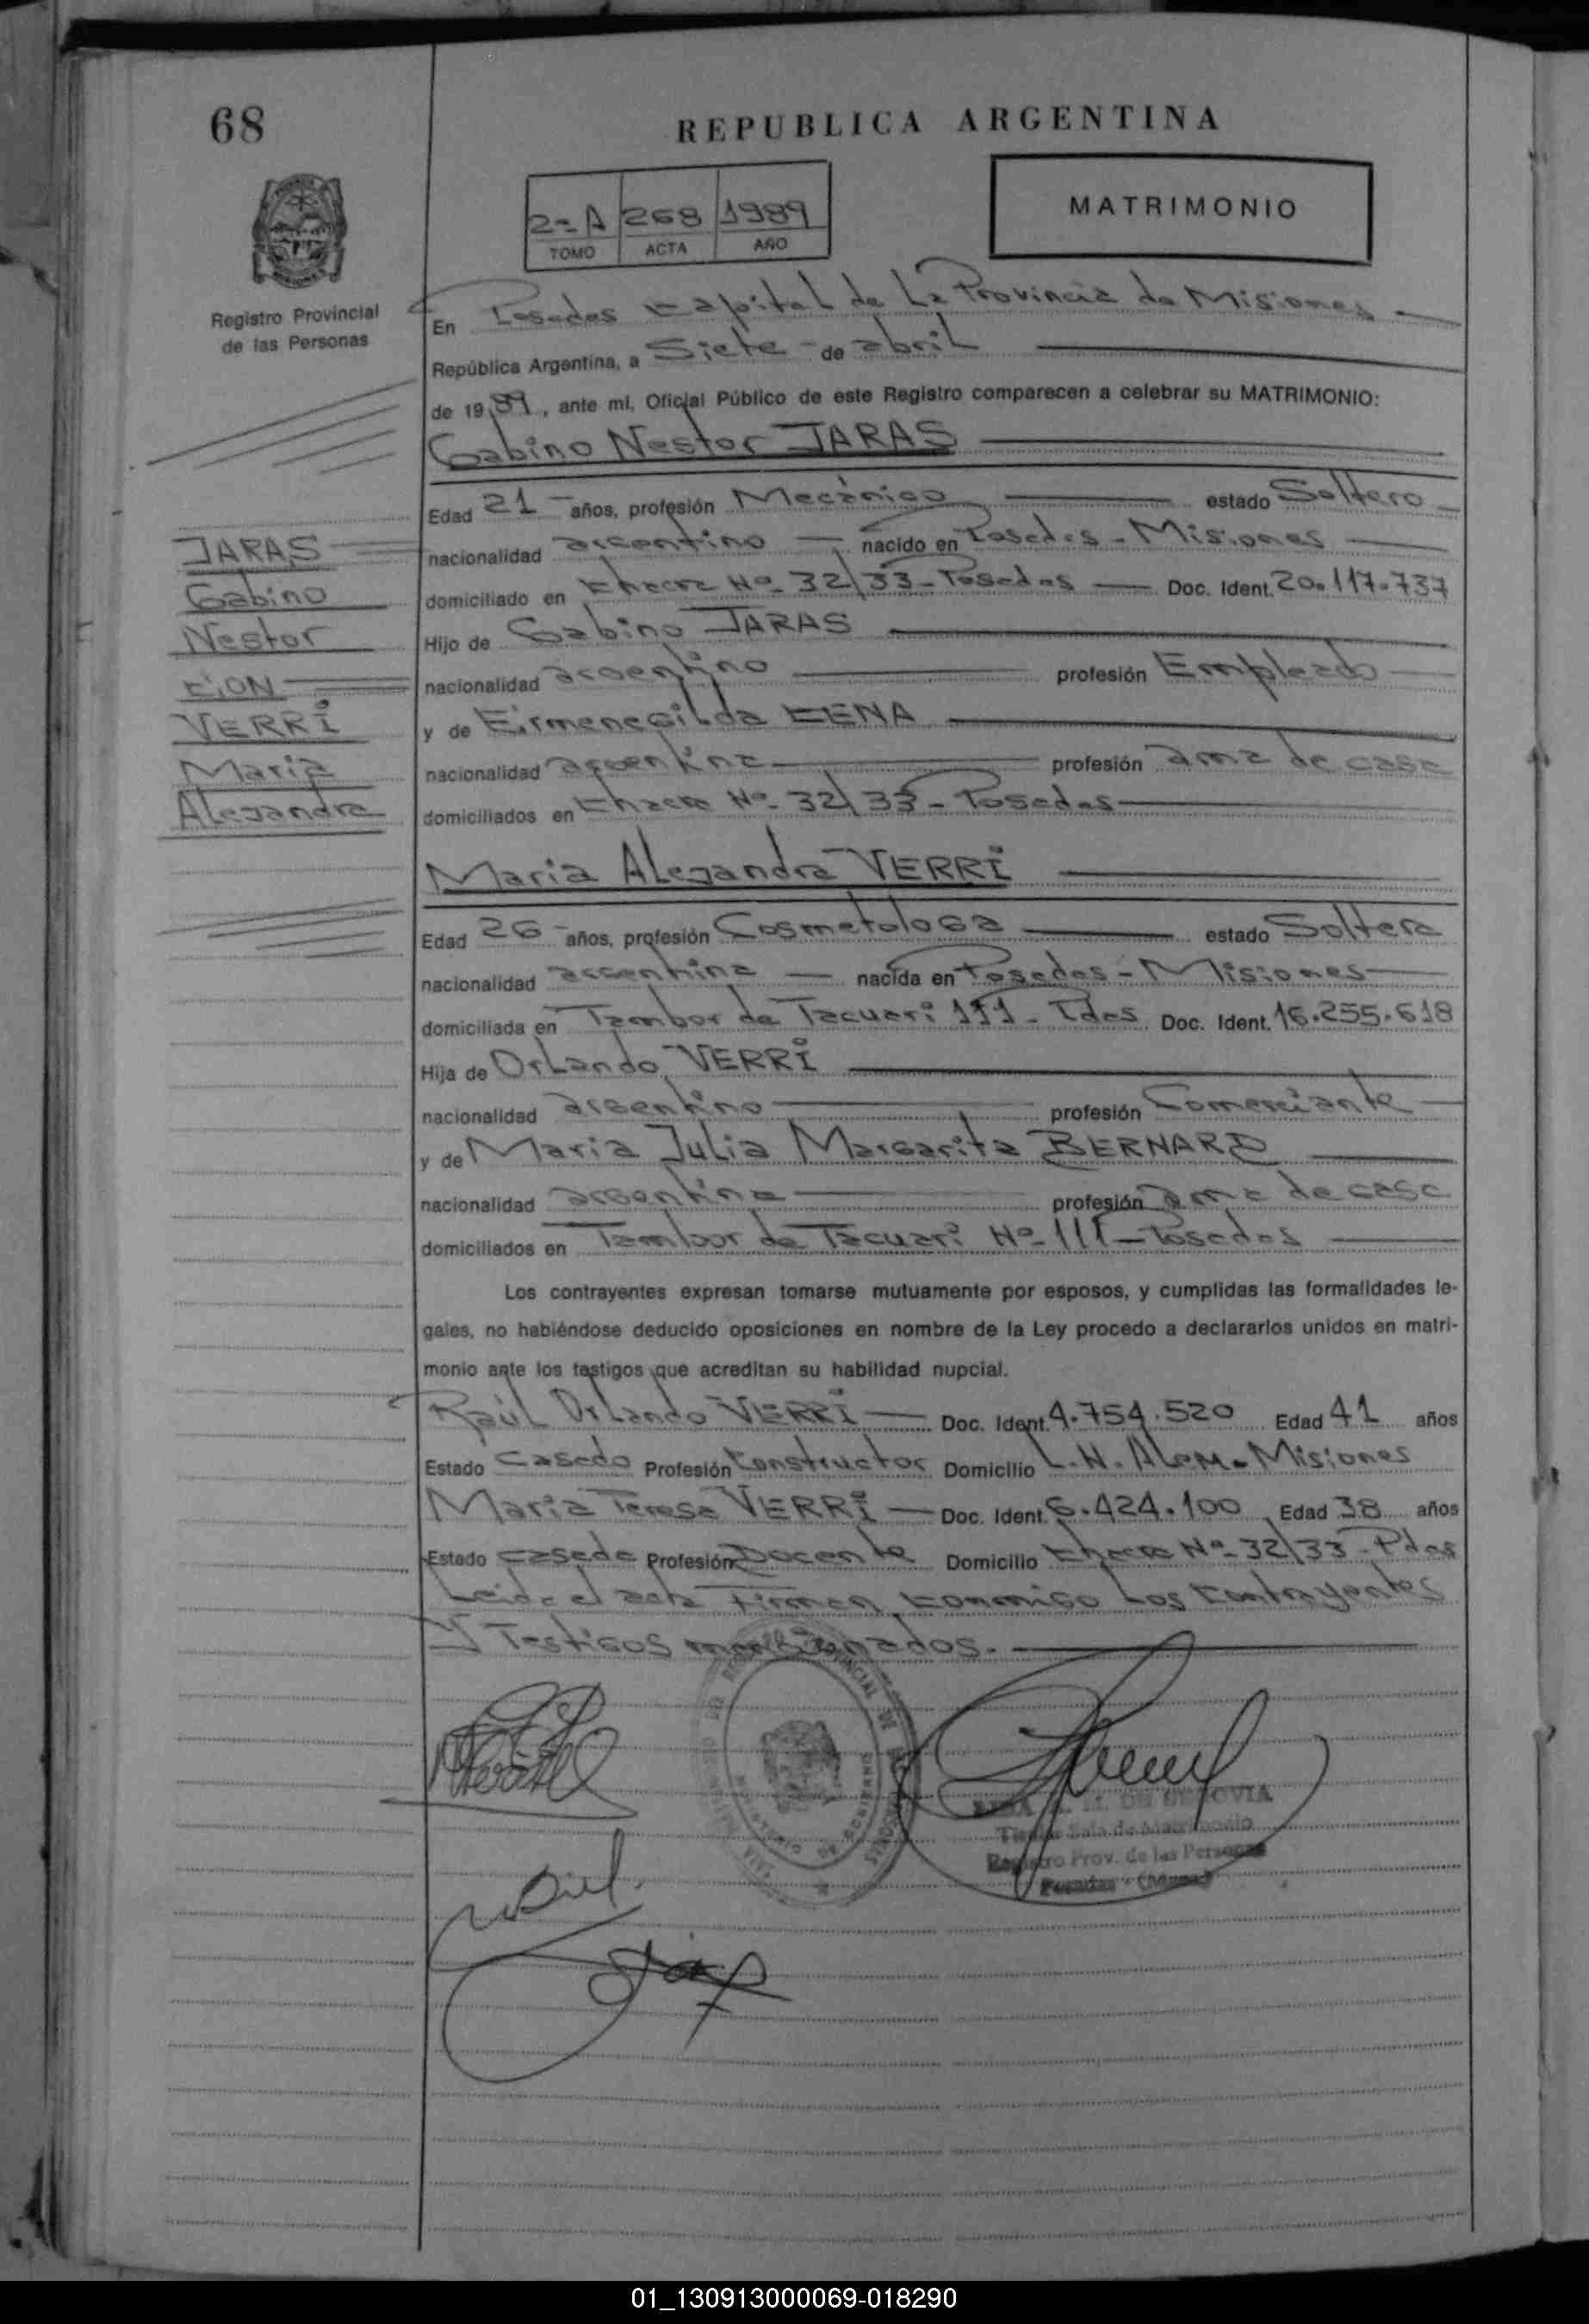 68
REPUBLICA ARGENTINA
2-A 268 1989
TOMO ACTA AÑO
MATRIMONIO
Registro Provincial
de las Personas
En Posadas Capital de La Provincia de Misiones
República Argentina, a Siete de abril
de 1989, ante mi, Oficial Público de este Registro comparecen a celebrar su MATRIMONIO:
Gabino Nestor JARAS
Edad 21 años, profesión Mecánico estado Soltero
nacionalidad argentino nacido en Posadas - Misiones
domiciliado en Chacra Nº 32/33 - Posadas Doc. Ident. 20.117.737
Hijo de Gabino JARAS
nacionalidad argentino profesión Empleado
y de Eirmenegilda CENA
nacionalidad argentina profesión ama de casa
domiciliados en Chacra Nº 32/33 - Posadas
JARAS
Gabino
Nestor
CON
VERRI
Maria
Alejandra
Maria Alejandra VERRI
Edad 26 años, profesión Cosmetologa estado Soltera
nacionalidad argentina nacida en Posadas - Misiones
domiciliada en Tambor de Tacuari 111 - Pdas Doc. Ident. 16.255.618
Hija de Orlando VERRI
nacionalidad argentino profesión Comerciante
y de Maria Julia Margarita BERNARD
nacionalidad argentina profesión ama de casa
domiciliados en Tambor de Tacuari Nº 111 - Posadas
Los contrayentes expresan tomarse mutuamente por esposos, y cumplidas las formalidades le-
gales, no habiéndose deducido oposiciones en nombre de la Ley procedo a declararlos unidos en matri-
monio ante los testigos que acreditan su habilidad nupcial.
Raúl Orlando VERRI Doc. Ident. 4.754.520 Edad 41 años
Estado Casado Profesión Constructor Domicilio L.N. Alem - Misiones
Maria Teresa VERRI Doc. Ident. 6.424.100 Edad 38 años
Estado casada Profesión Docente Domicilio Chacra Nº 32/33 - Pdas
Leida el acta Firman conmigo Los Contrayentes
Y Testigos mencionados.
DE SEGOVIA
Titular Sala de Matrimonio
Registro Prov. de las Personas
Posadas - (Mnes)
01_130913000069-018290